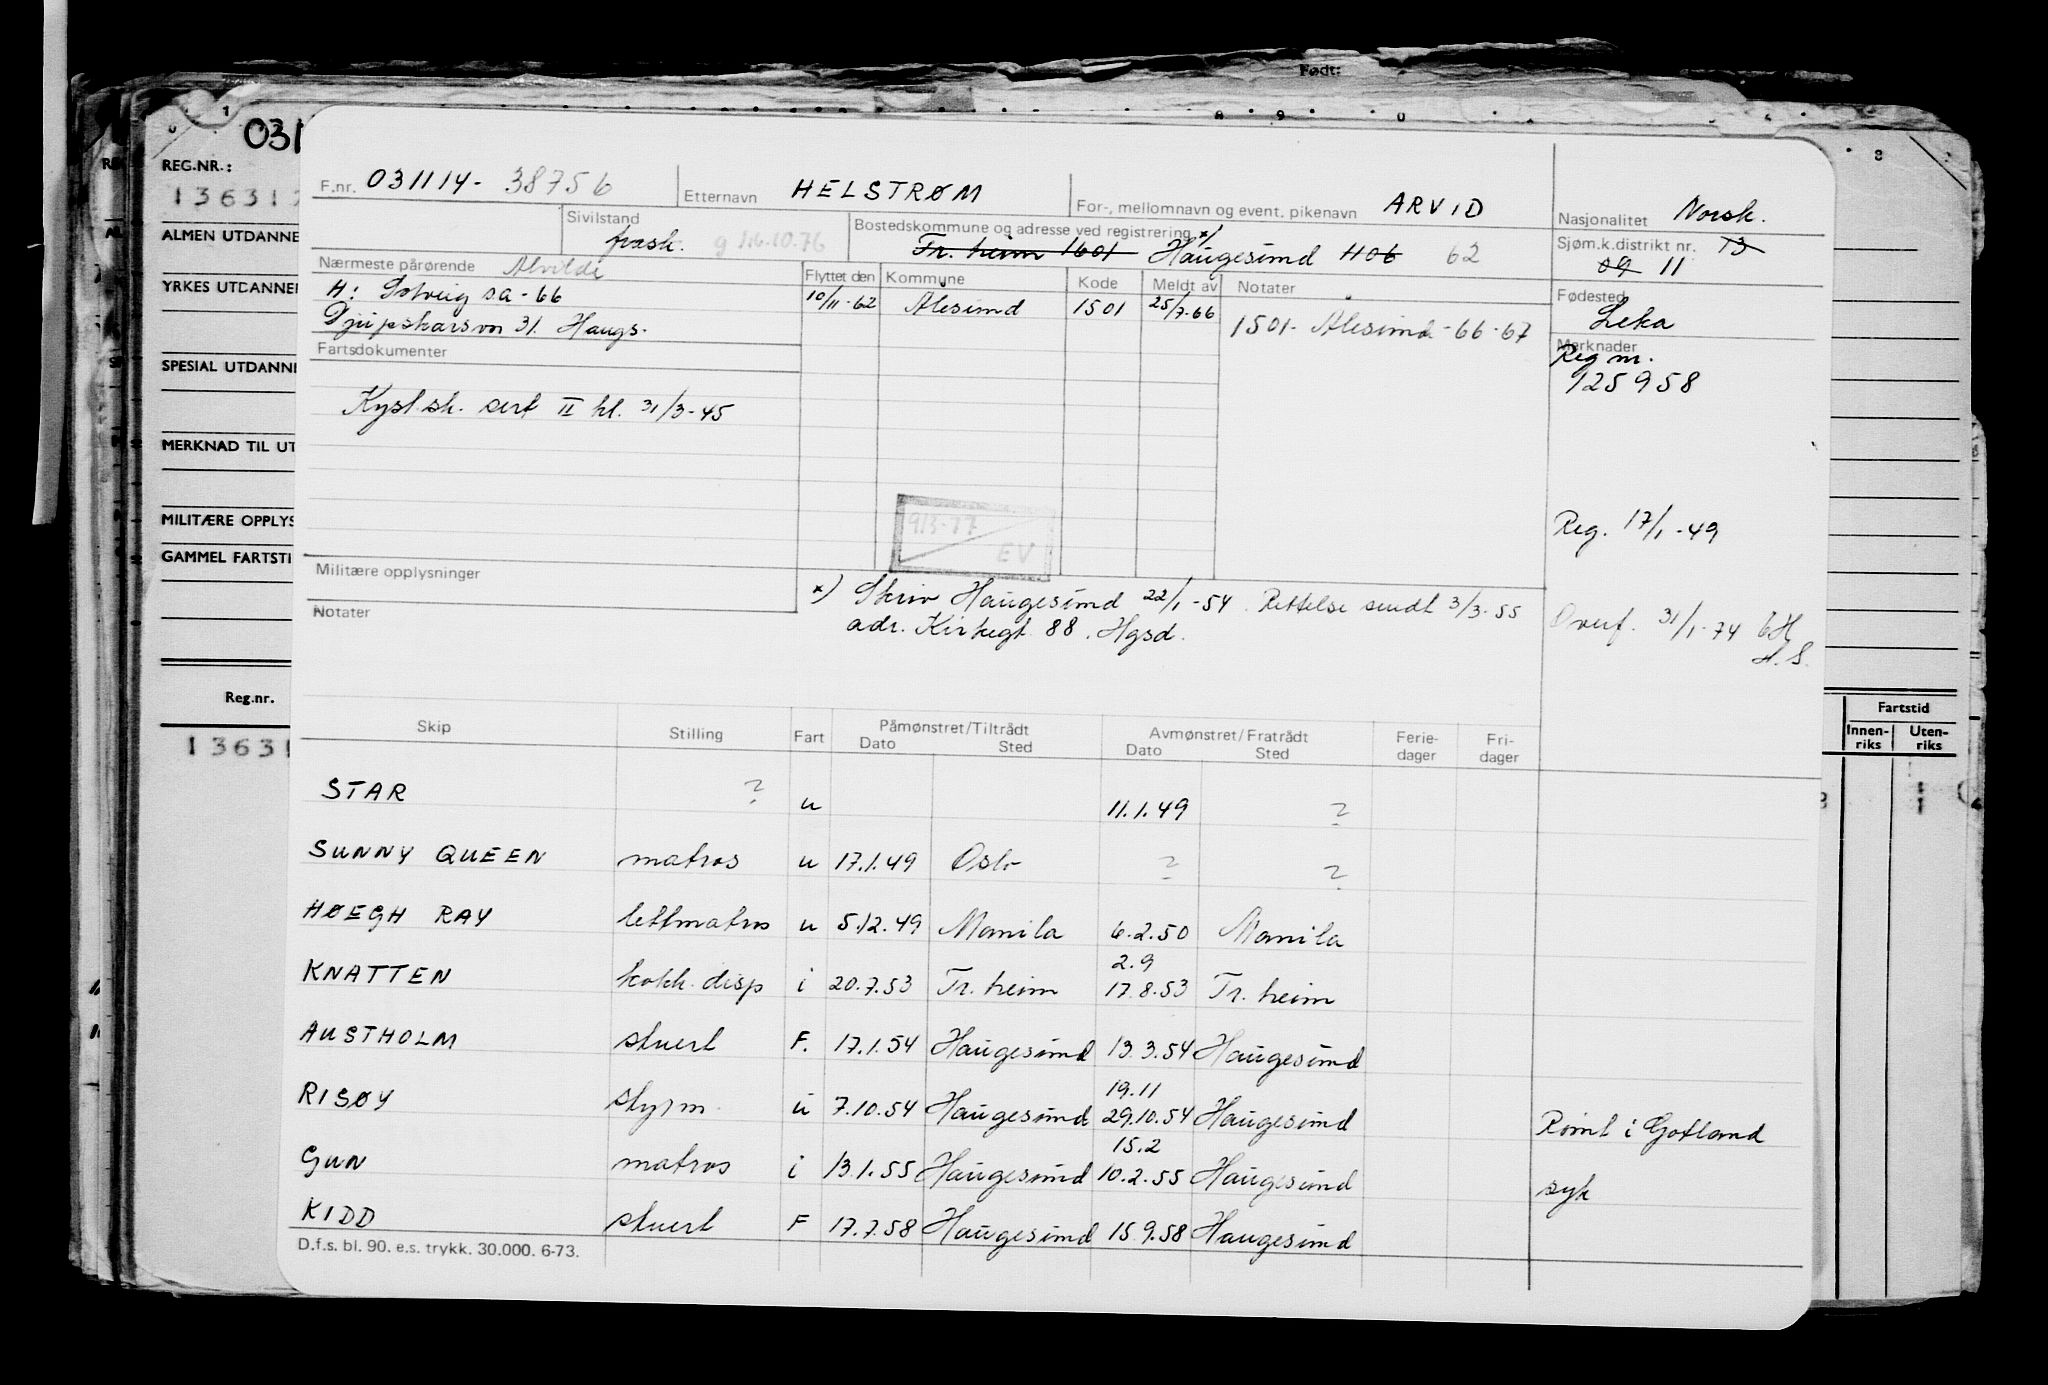 Født:
031
REG.NR.:
13631
ALMEN UTDANNE
YRKES UTDANNE
SPESIAL UTDANN
MERKNAD TIL UT
MILITÆRE OPPLYS
GAMMEL FARTSTI
Reg.nr.
13631
Fartstid
Innen-riks Uten-riks
F.nr. 031114- 38756 Etternavn HELSTRØM For-, mellomnavn og event. pikenavn ARVID Nasjonalitet Norsk.
Sivilstand frask. g 16.10.76 Bostedskommune og adresse ved registrering x) Tr. heim 1601 Haugesund 1106 62 Sjøm.k.distrikt nr. 13 09 11
Nærmeste pårørende Alvilde Flyttet den Kommune Kode Meldt av Notater Fødested Leka
H: Solveig s.a - 66 10/11-62 Ålesund 1501 25/7-66 1501- Ålesund -66-67
Djupskarsvn 31. Haugs.
Fartsdokumenter Merknader
Reg nr. 125958
Kyst.sk. sert II kl. 31/3-45
913-77 EV
Reg. 17/1-49
Militære opplysninger
Notater
x) Skriv Haugesund 22/1-54. Rettelse sendt 3/3-55
adr. Kirkegt 88, Hgsd.
Overf. 31/1-74
H.S.
Skip Stilling Fart Påmønstret/Tiltrådt Dato Sted Avmønstret/Fratrådt Dato Sted Ferie-dager Fri-dager
STAR ? u 11.1.49 ?
SUNNY QUEEN matros u 17.1.49 Oslo ? ?
HØEGH RAY lettmatros u 5.12.49 Manila 6.2.50 Manila
2.9
KNATTEN kokk. disp i 20.7.53 Tr. heim 17.8.53 Tr. heim
AUSTHOLM stuert F. 17.1.54 Haugesund 13.3.54 Haugesund
19.11
RISØY styrm. u 7.10.54 Haugesund 29.10.54 Haugesund Rømt i Gotland
15.2
GUN matros i 13.1.55 Haugesund 10.2.55 Haugesund syk
KIDD stuert F 17.7.58 Haugesund 15.9.58 Haugesund
D.f.s. bl. 90. e.s. trykk. 30.000. 6-73.